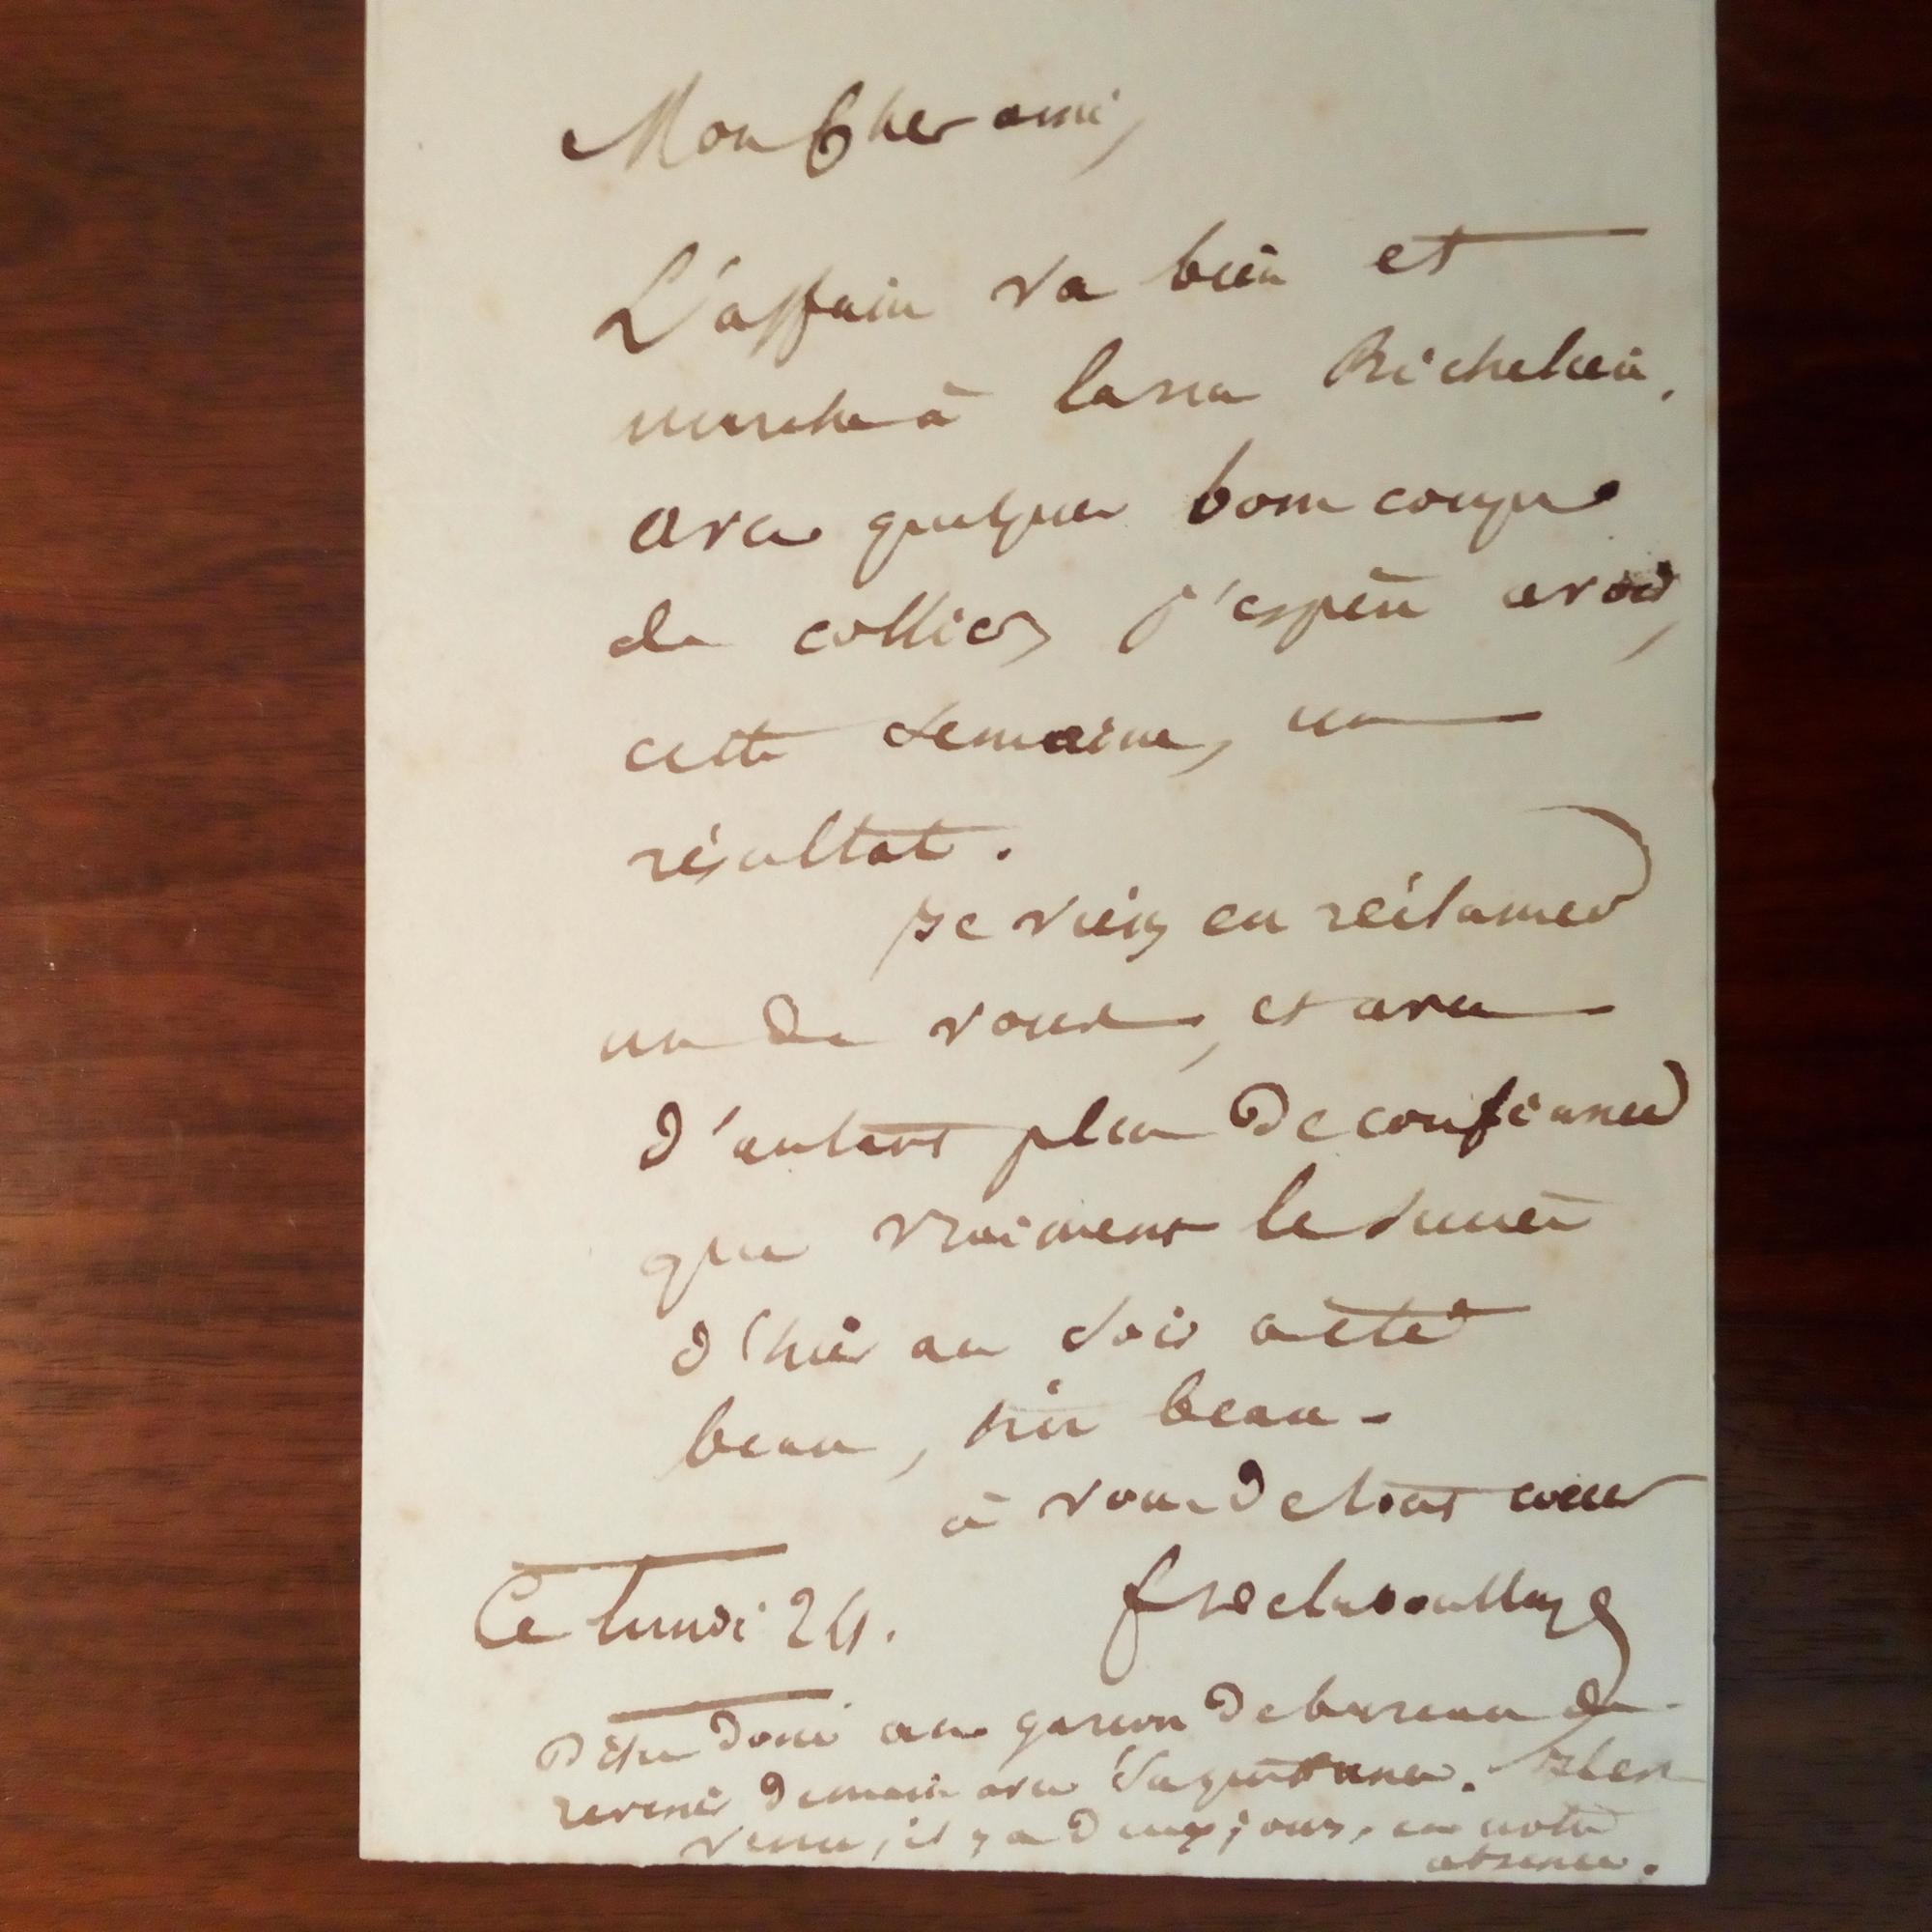 Mon Cher ami,
L'affaire va bien et
marche à la rue Richelieu.
avec quelques bons coups
de collier j'espère avoir,
cette semaine, un
résultat.
Je viens en réclamer
un de vous, et avec
d'autant plus de confiance
que vraiment le succès
d'hier au soir a été
beau, très beau -
à vous de tout coeur
Ce lundi 24.
Dites donc au garçon de bureau de
revenir demain avec sa quittance. Il est
venu, il y a deux jours, en notre
absence.